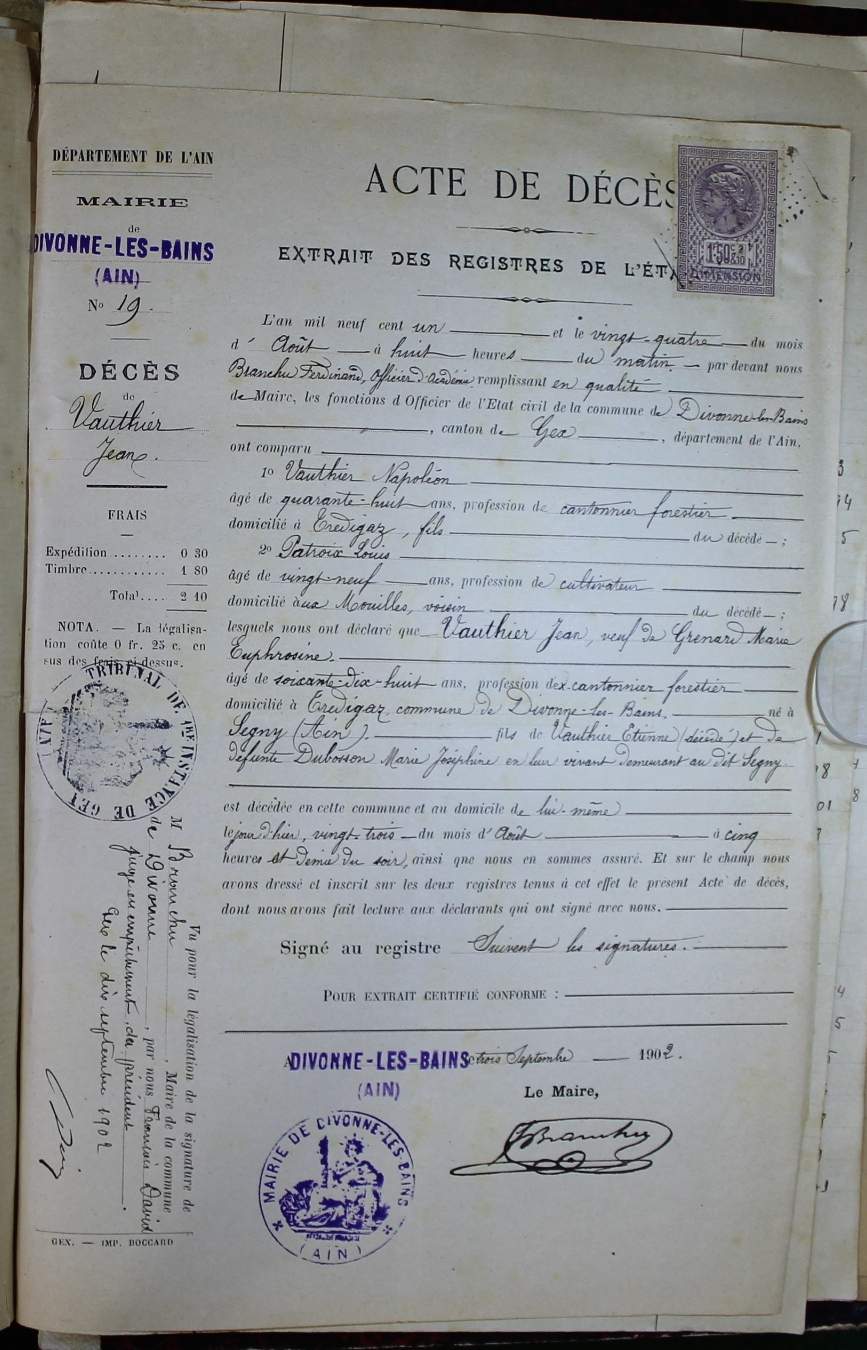 DÉPARTEMENT DE L'AIN
MAIRIE
de
DIVONNE-LES-BAINS
(AIN)
No 19.
DÉCÈS
de
Vauthier
Jean.
FRAIS
Expédition ........ 0 30
Timbre............ 1 80
Total.... 2 10
NOTA. — La légalisa-
tion coûte 0 fr. 25 c. en
sus des frais ci-dessus.
TRIBUNAL DE 1re INSTANCE DE GEX
Vu pour la légalisation de la signature de
M Branchu, Maire de la commune
de Divonne, par nous François David
juge en empêchement du président
Gex le dix septembre 1902
GEX. — IMP. BOCCARD
ACTE DE DÉCÈS
EXTRAIT DES REGISTRES DE L'ÉTA
1F50c
DIMENSION
L'an mil neuf cent un et le vingt-quatre du mois
d'Août à huit heures du matin — par devant nous
Branchu Ferdinand, Officier d'Académie remplissant en qualité
de Maire, les fonctions d'Officier de l'Etat civil de la commune de Divonne-les-Bains
, canton de Gex, département de l'Ain,
ont comparu
1o Vauthier Napoléon
âgé de quarante-huit ans, profession de cantonnier forestier
domicilié à Eredigaz, fils du décédé ;
2o Patroix Louis
âgé de vingt-neuf ans, profession de cultivateur
domicilié aux Mouilles, voisin du décédé ;
lesquels nous ont déclaré que Vauthier Jean, veuf de Grenard Marie
Euphrosine.
âgé de soixante-dix-huit ans, profession d'ex-cantonnier forestier
domicilié à Eredigaz, commune de Divonne-les-Bains. né à
Segny (Ain) fils de Vauthier Etienne (décédé) et de
défunte Dubosson Marie Joséphine en leur vivant demeurant au dit Segny.
est décédée en cette commune et au domicile de lui-même
le jour d'hier, vingt-trois du mois d'Août à cinq
heures et demie du soir, ainsi que nous en sommes assuré. Et sur le champ nous
avons dressé et inscrit sur les deux registres tenus à cet effet le present Acte de décès,
dont nous avons fait lecture aux déclarants qui ont signé avec nous.
Signé au registre Suivent les signatures.
POUR EXTRAIT CERTIFIÉ CONFORME :
A DIVONNE-LES-BAINS trois Septembre 1902.
(AIN)
Le Maire,
FBranchu
MAIRIE DE DIVONNE-LES-BAINS
(AIN)